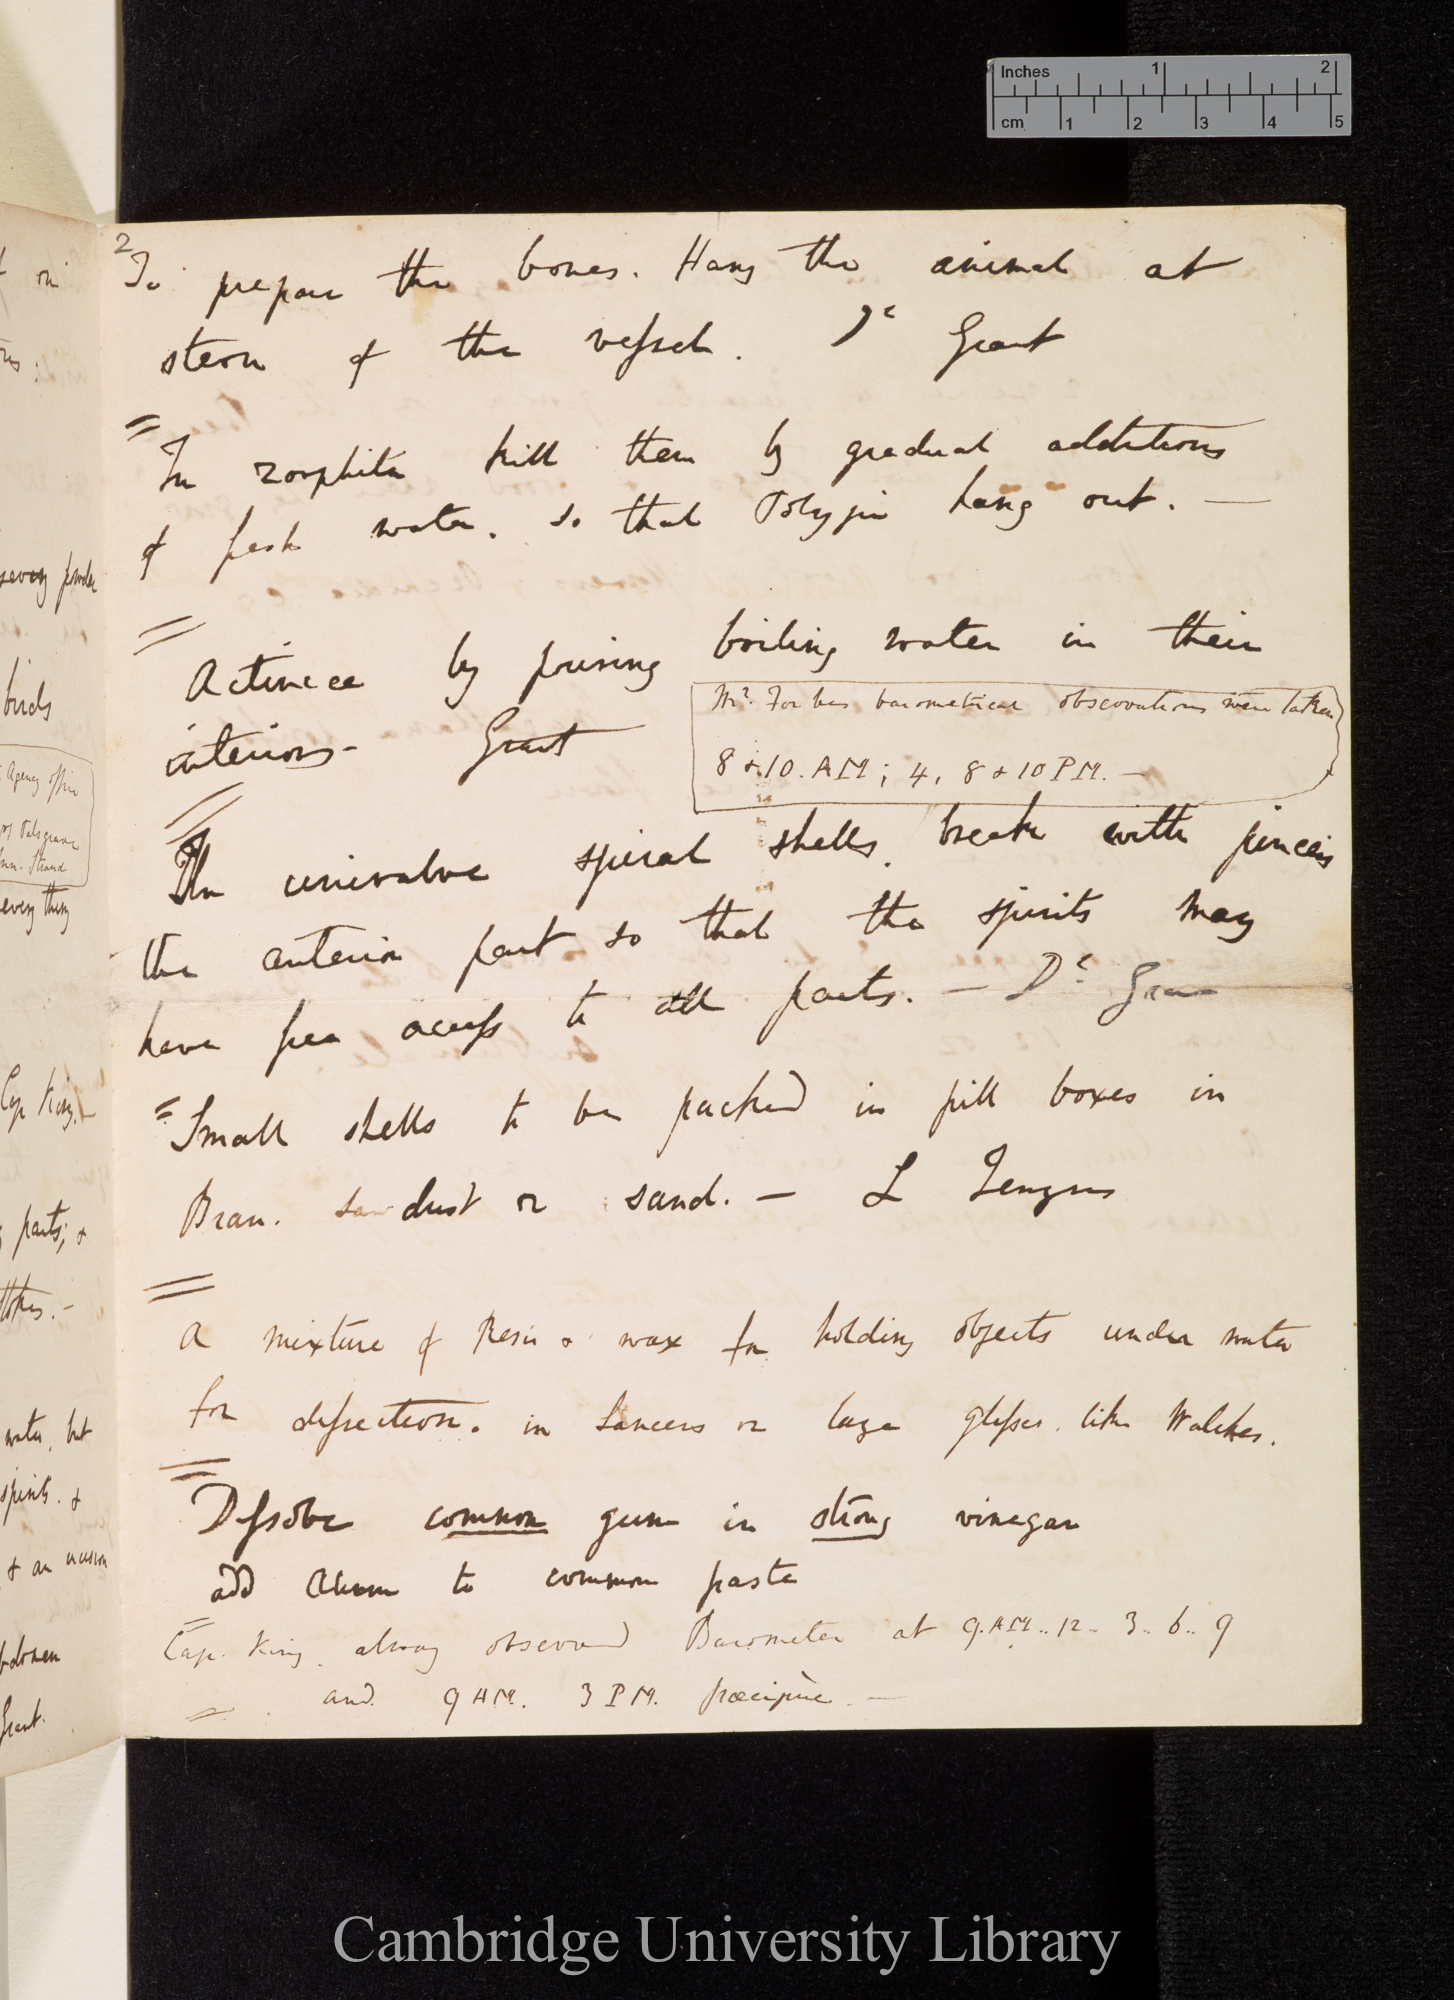 Inches 1 2
cm 1 2 3 4 5
on
severy powder
birds
Agency office
Strand
every thing
Cap King. —
parts; &
water, but
spirits. &
& an incision
Grant.
2
To prepare the bones. Hang the animal at
stern of the vessel. Dr Grant
=
In zoophites kill them by gradual additions
of fresh water. so that Polypi hang out. —
=
Actineæ by pouring boiling water in their
interiors — Grant
Mr. Forbes barometrical observations were taken
8 & 10. AM; 4, 8 & 10 PM. —
=
In univalve spiral shells. break with pincers
the anterior part so that the spirits may
have free access to all parts. — Dr Grant
=
Small shells to be packed in pill boxes in
Bran. saw dust or sand. — L Jenyns
=
A mixture of Resin & wax for holding objects under water
for dissection. in Saucers or large glasses. like Watches.
=
Dissolve common gum in strong vinegar
add Alum to common paste
=
Cap. King. always observed Barometer at 9. AM.. 12.. 3.. 6.. 9
and 9 AM. 3 PM. præcipue. —
=
Cambridge University Library